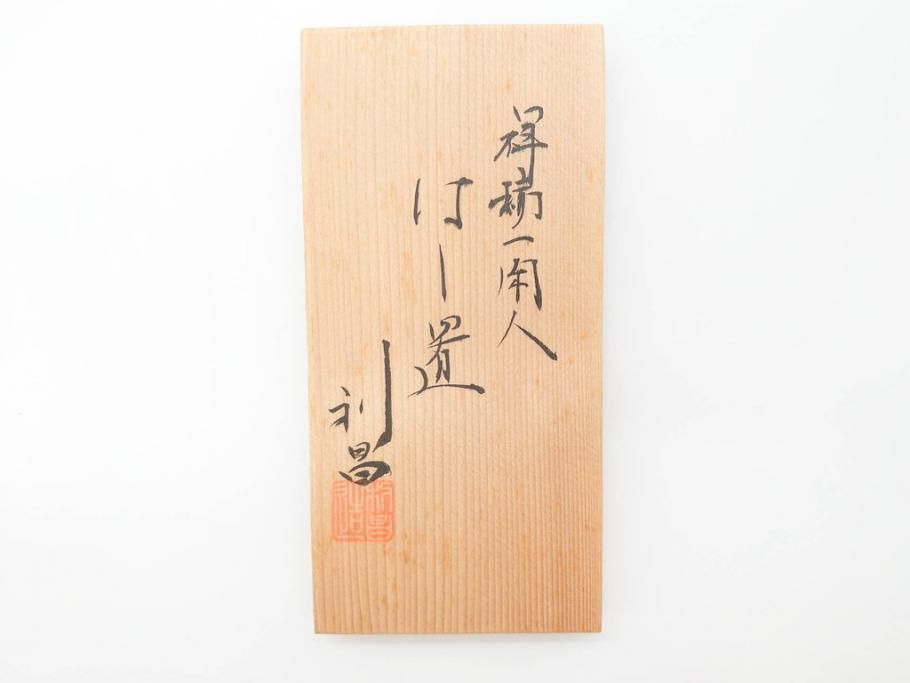 祥瑞一閑人
はし置
利昌